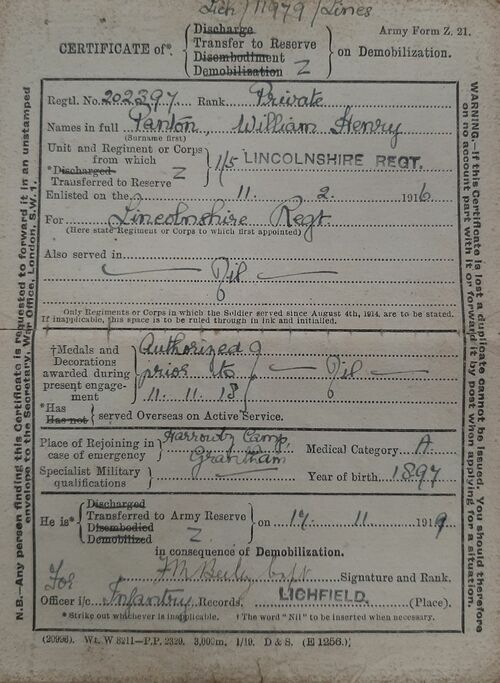 Lich/11979/Lines
Army Form Z. 21.
CERTIFICATE of*
Discharge
Transfer to Reserve
Disembodiment
Demobilisation Z
on Demobilization.
Regtl. No. 202397 Rank Private
Names in full Panton, William Henry
(Surname first)
Unit and Regiment or Corps
from which
*Discharged
Transferred to Reserve Z
1/5 LINCOLNSHIRE REGT.
Enlisted on the 11. 2. 1916
For Lincolnshire Regt
(Here state Regiment or Corps to which first appointed)
Also served in
Nil
Only Regiments or Corps in which the Soldier served since August 4th, 1914, are to be stated.
If inapplicable, this space is to be ruled through in ink and initialled.
†Medals and
Decorations
awarded during
present engage-
ment
Authorized
prior to
11. 11. 18
Nil
*Has
Has not
served Overseas on Active Service.
Place of Rejoining in
case of emergency
Harrowby Camp,
Grantham
Medical Category A
Specialist Military
qualifications
Year of birth 1897
He is*
Discharged
Transferred to Army Reserve
Disembodied
Demobilized
Z
on 17. 11 1919
in consequence of Demobilization.
Capt Signature and Rank.
For
Officer i/c Infantry Records. LICHFIELD. (Place).
*Strike out whichever is inapplicable. † The word "Nil" to be inserted when necessary.
(20996). Wt. W 8211—P.P. 2329. 3,000m. 1/19. D & S. (E 1256.)
N.B.—Any person finding this Certificate is requested to forward it in an unstamped
envelope to the Secretary, War Office, London, S.W. 1.
WARNING.—If this Certificate is lost a duplicate cannot be issued. You should therefore
on no account part with it or forward it by post when applying for a situation.